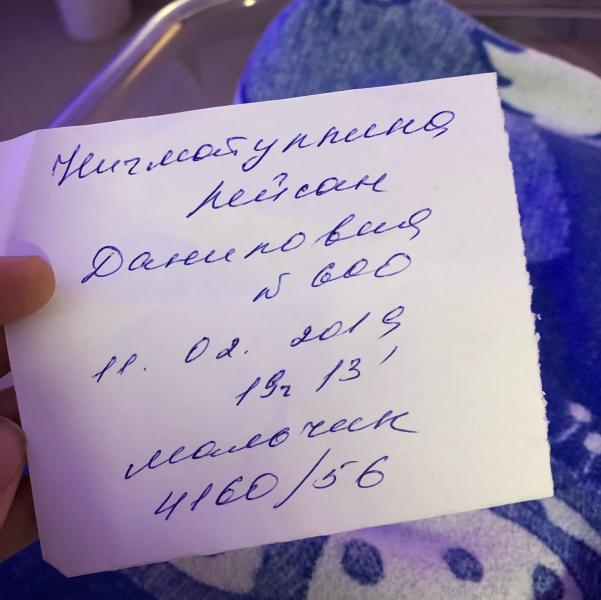 Нигматуллина
Лейсан
Даниловна
№ 600
11. 02. 2019
19г 13'
мальчик
4160/56